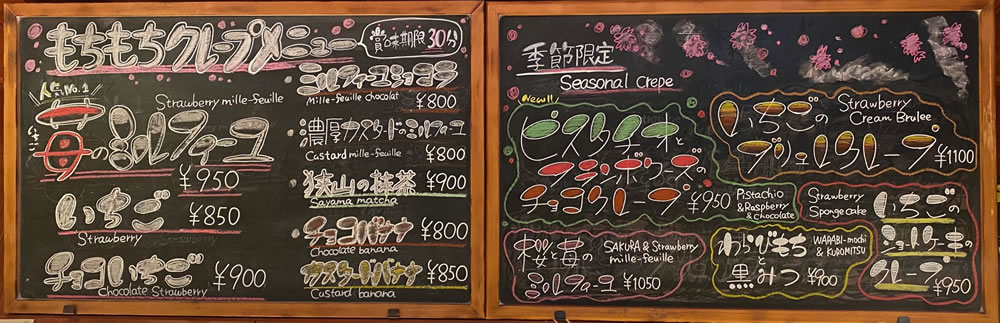 もちもちクレープメニュー
賞味期限30分
人気No.1
Strawberry mille-feuille
苺のミルフィーユ
¥950
いちご ¥850
Strawberry
チョコいちご ¥900
Chocolate Strawberry
ミルフィーユショコラ
Mille-feuille chocolat ¥800
濃厚カスタードのミルフィーユ
Custard mille-feuille ¥800
狭山の抹茶 ¥900
Sayama matcha
チョコバナナ ¥800
Chocolate banana
カスタードバナナ ¥850
Custard banana
季節限定
Seasonal Crepe
New!!
ピスタチオと
フランボワーズの
チョコクレープ ¥950
Pistachio
& Raspberry
& chocolate
いちごの
Strawberry
Cream Brulee
ブリュレクレープ ¥1100
桜と苺の
SAKURA & Strawberry
mille-feuille
ミルフィーユ ¥1050
わらびもち
WARABI-mochi
& KUROMITSU
と
黒みつ ¥900
Strawberry
Sponge cake
いちごの
ショートケーキの
クレープ ¥950